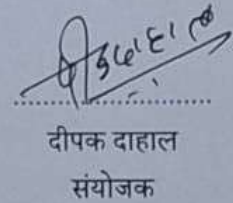 दीपक दाहाल
संयोजक